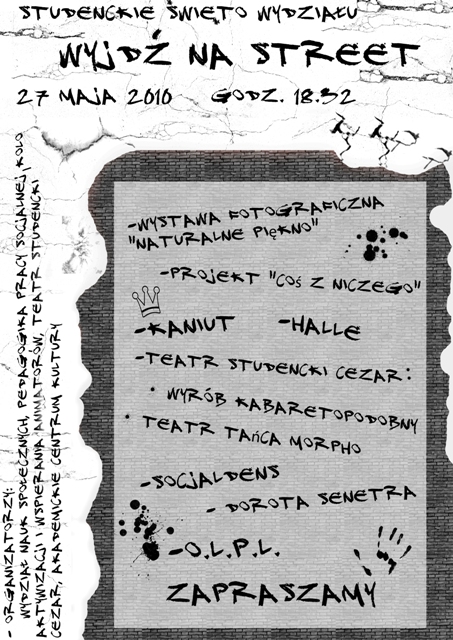 STUDENCKIE ŚWIĘTO WYDZIAŁU
WYJDŹ NA STREET
27 MAJA 2010 GODZ. 18.32
-WYSTAWA FOTOGRAFICZNA
"NATURALNE PIĘKNO"
-PROJEKT "COŚ Z NICZEGO"
-KANIUT -HALLE
-TEATR STUDENCKI CEZAR:
• WYRÓB KABARETOPODOBNY
• TEATR TAńCA MORPHO
-SOCJALDENS
- DOROTA SENETRA
-O.L.P.L.
ZAPRASZAMY
- ORGANIZATORZY:
WYDZIAŁ NAUK SPOŁECZNYCH, PEDAGOGIKA PRACY SOCJALNEJ, KOŁO
AKTYWIZACJI I WSPIERANIA ANIMATORÓW, TEATR STUDENCKI
CEZAR, AKADEMICKIE CENTRUM KULTURY